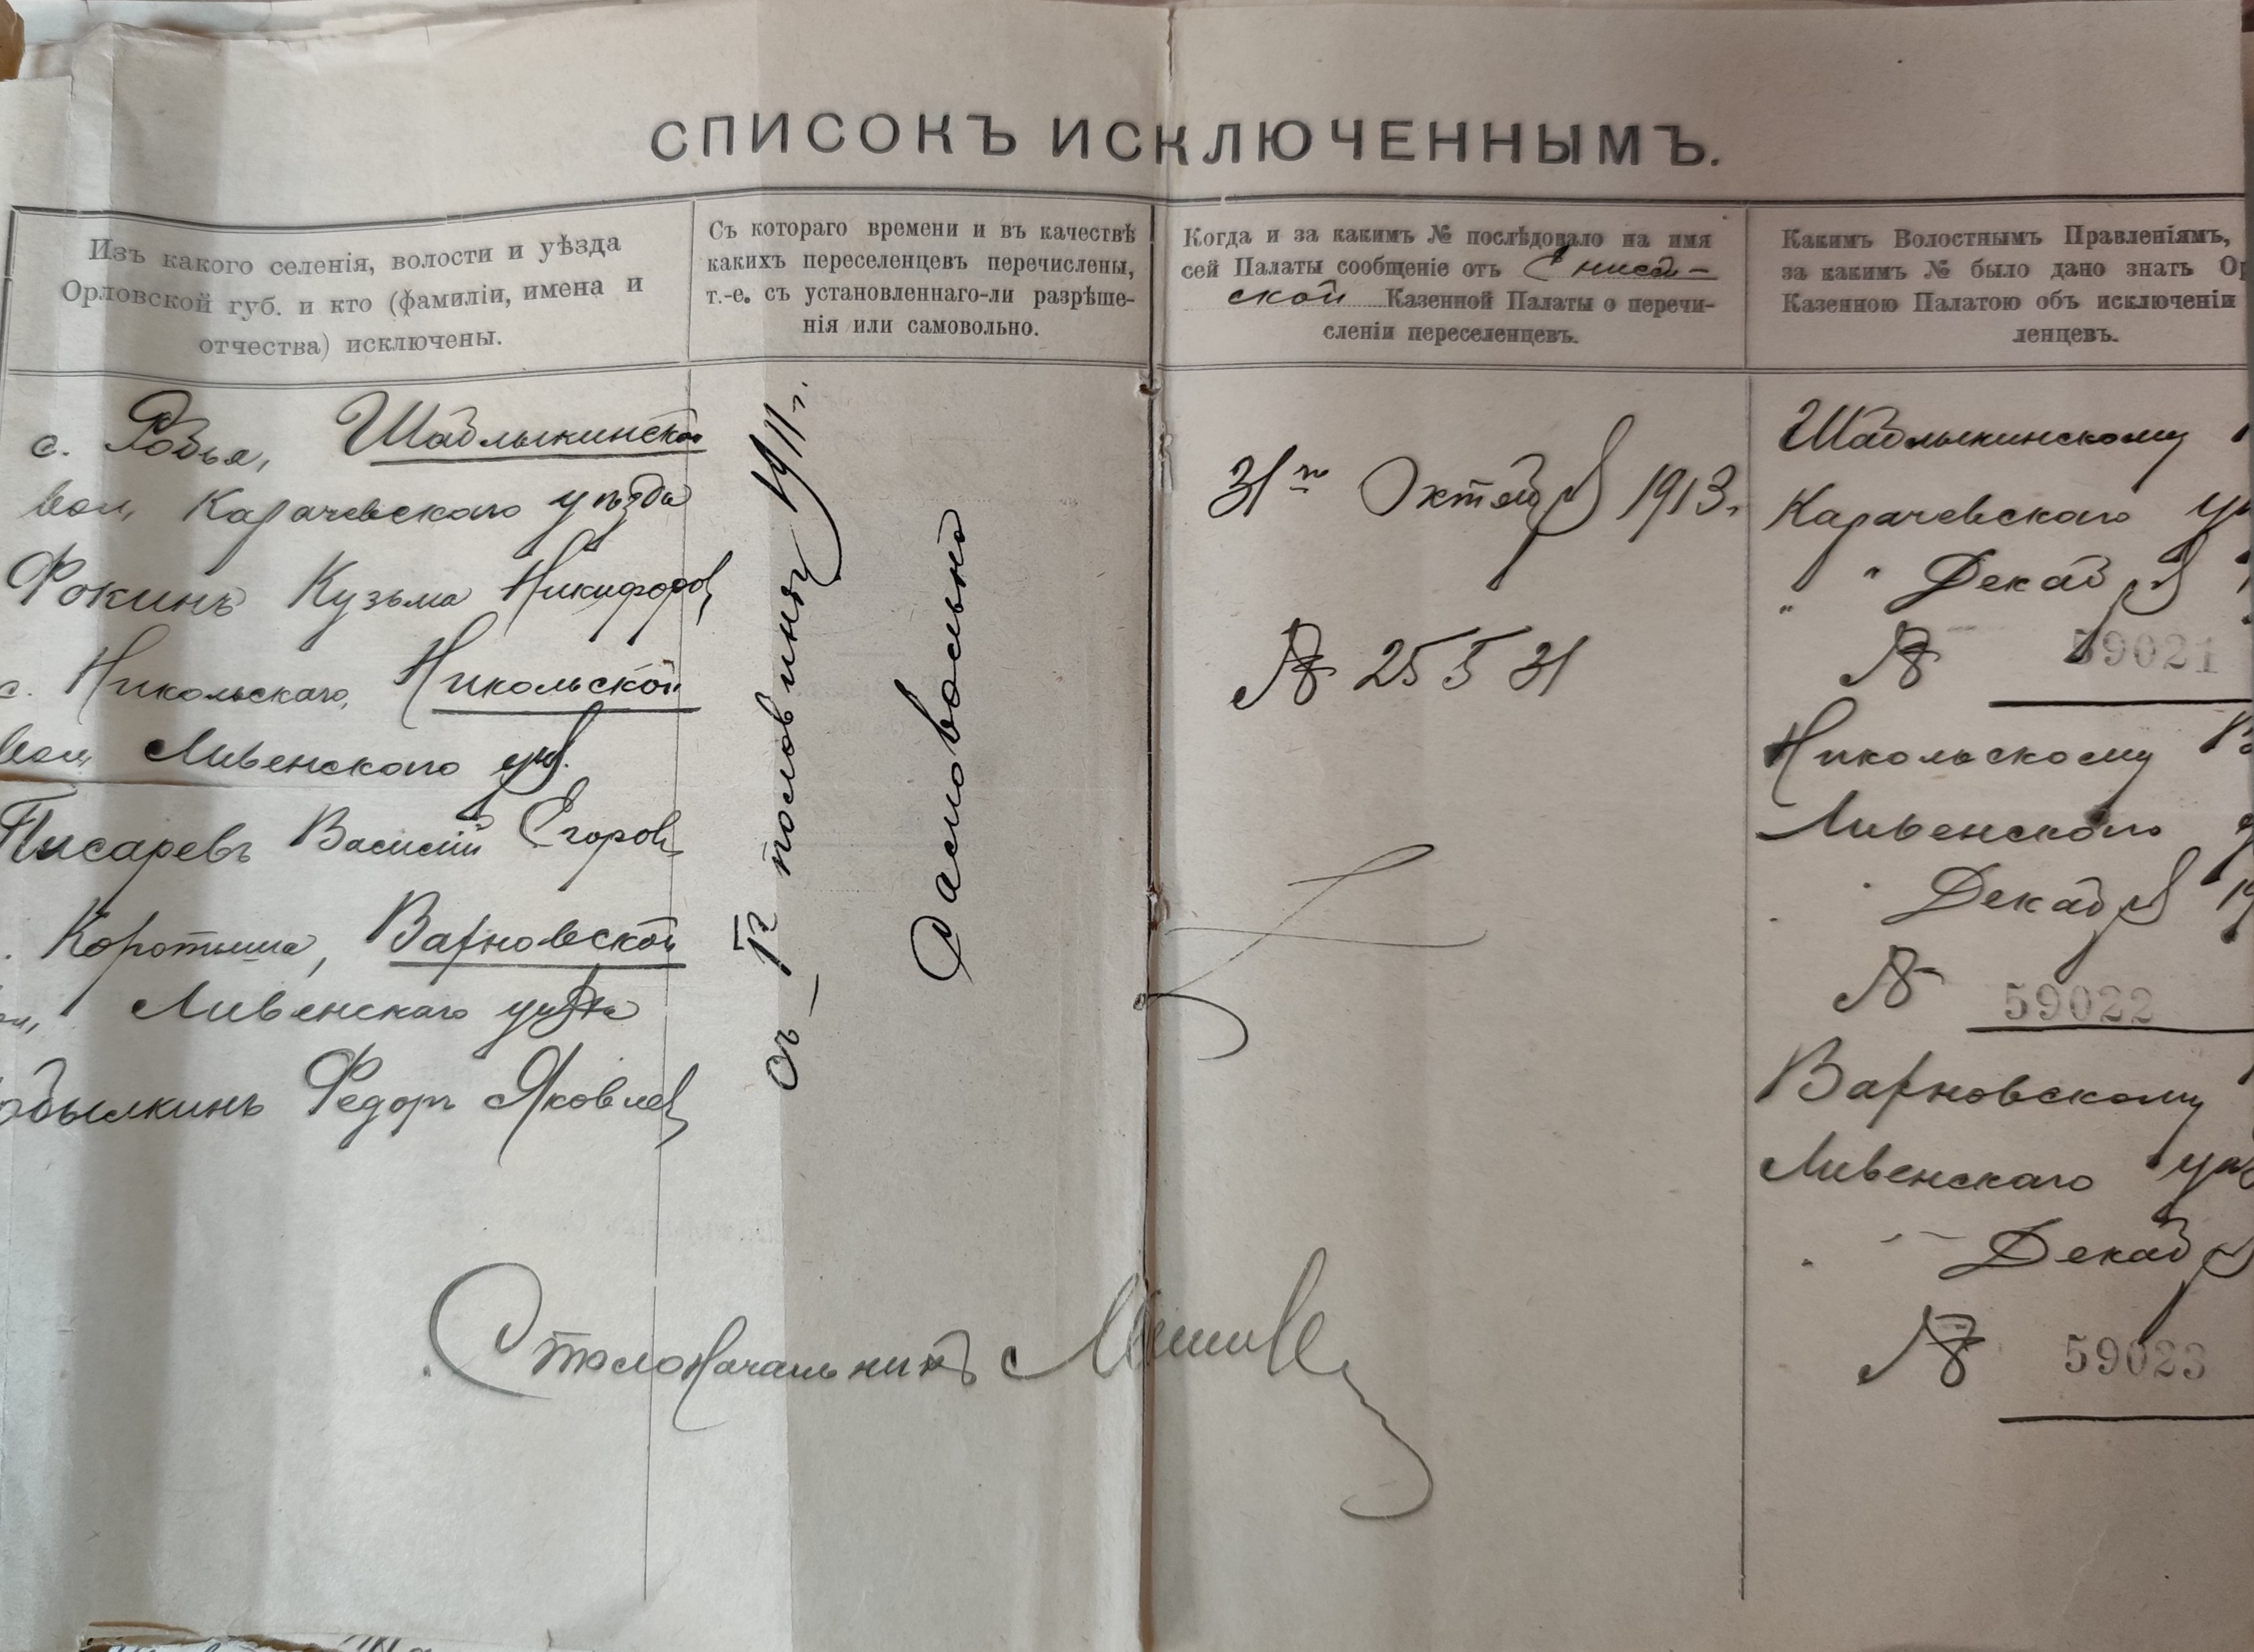 СПИСОКЪ ИСКЛЮЧЕННЫМЪ.
Изъ какого селенія, волости и уѣзда
Орловской губ. и кто (фамиліи, имена и
отчества) исключены.
Съ котораго времени и въ качествѣ
какихъ переселенцевъ перечислены,
т.-е. съ установленнаго-ли разрѣше-
нія или самовольно.
Когда и за какимъ № послѣдовало на имя
сей Палаты сообщеніе отъ Енисей-
ской Казенной Палаты о перечи-
сленіи переселенцевъ.
Какимъ Волостнымъ Правленіямъ,
за какимъ № было дано знать Ор
Казенною Палатою объ исключеніи
ленцевъ.
с. Робья, Шаблыкинской
вол, Карачевскаго уѣзда
Фокинъ Кузьма Никифоров,
с. Никольскаго, Никольской
вол, Ливенскаго уѣз.
Писаревъ Василій Егоров,
Коротыша, Вахновской
ол, Ливенскаго уѣзда
обылкинъ Федоръ Яковлев,
съ 1й половины 1911 г.
Самовольно
31го Октяб 1913 г.
№ 25531
Шаблыкинскому
Карачевскаго уѣ
" " Декаб
№ 59021
Никольскому В
Ливенскаго у
Декаб 19
№ 59022
Вахновскому
Ливенскаго уѣз
Декаб
№ 59023
Столоначальникъ